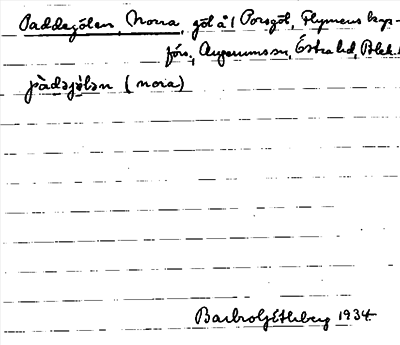 Paddegölen, Norra, göl å 1 Porsgöl, Flymens kap-
förs., Augerums sn, Östra hd, Blek.
pàdəjø̀lən (nora)
Barbro Götherberg 1934